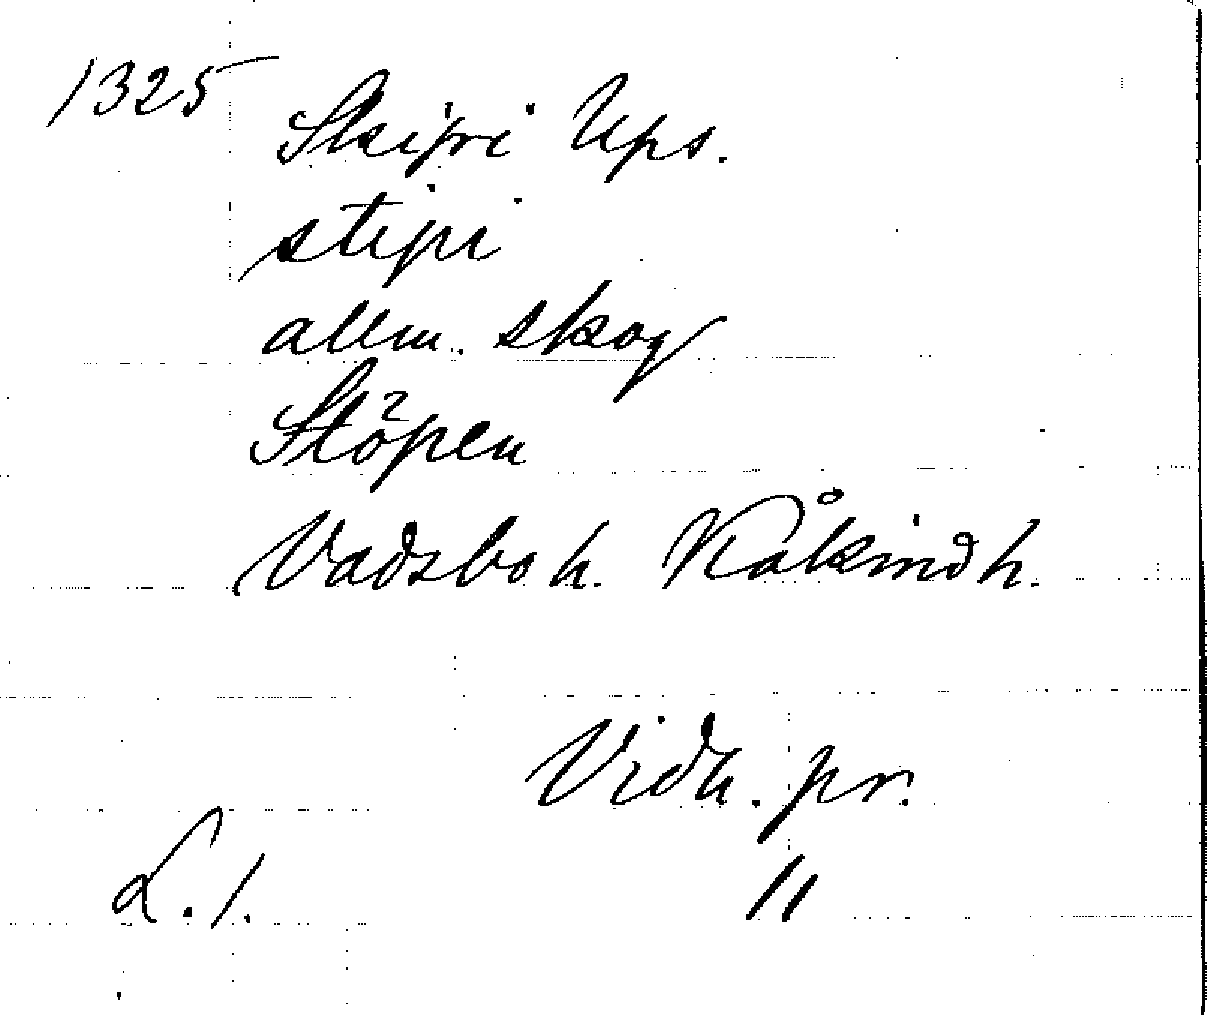 1325
Skipri Ups.
stipi
allm. skog
Stöpen
Vadsbo h. Kåkind h.
Vidh. pr.
L. 1. 11